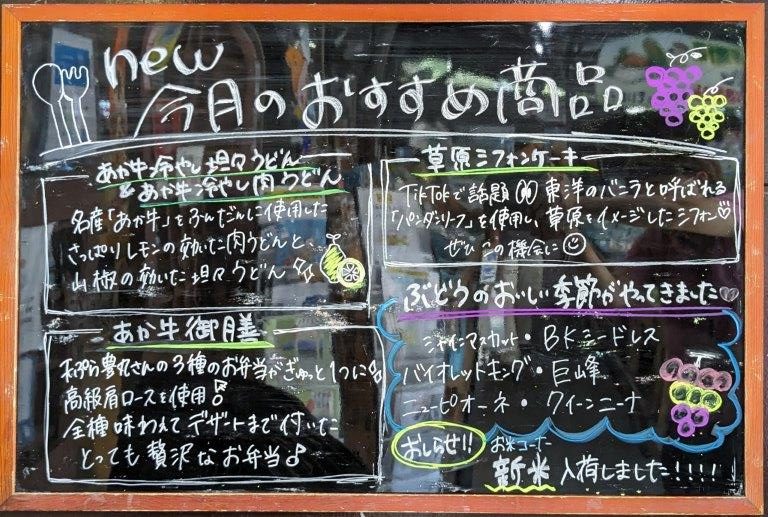 new
今月のおすすめ商品
あか牛冷やし坦々うどん
&あか牛冷やし肉うどん
名産「あか牛」をふんだんに使用した
さっぱりレモンの効いた肉うどんと、
山椒の効いた坦々うどん
草原シフォンケーキ
TikTokで話題 東洋のバニラと呼ばれる
「パンダンリーフ」を使用し、草原をイメージしたシフォン♡
ぜひこの機会に
あか牛御膳
豊丸さんの3種のお弁当がぎゅっと1つに
高級肩ロースを使用
全種味わえてデザートまで付いた
とっても贅沢なお弁当
ぶどうのおいしい季節がやってきました♡
シャインマスカット・BKシードレス
バイオレットキング・巨峰
ニューピオーネ・クイーンニーナ
おしらせ!!
お米コーナー
新米入荷しました!!!!